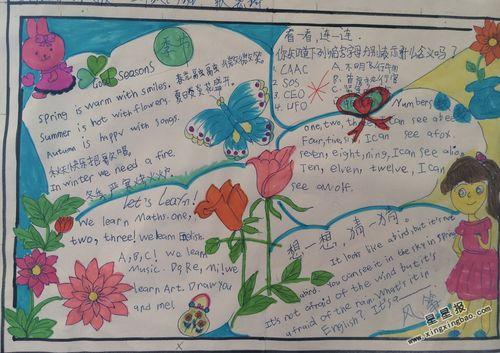 季节
Good Seasons
Spring is warm with smiles. 春意融融微微笑
Summer is hot with flowers. 夏日炎炎花盛开
Autumn is happy with songs.
秋季快乐把歌唱
In winter we need a fire.
Let's learn!
We learn Maths: one,
two, three! we learn English.
A, B, C! we learn
Music. Do, Re, Mi, we
learn Art. Draw you
and me!
看一看,连一连.
你知道下列缩写字母分别表示什么含义吗?
1. CAAC A. 不明飞行物
2. SOS B.
3. CEO
4. UFO
Numbers
one, two, I can see a bee.
Four, five, six, I can see a fox.
seven, eight, nine, I can see a lion
Ten, eleven, twelve, I can
see a wolf.
想一想,猜一猜.
It looks like a bird, but it's not
a bird. You can see it in the sky in spring
It's not afraid of the wind but it's
afraid of the rain. What's it in
English? It's a
风筝
星星报
www.jxxingxingbao.com